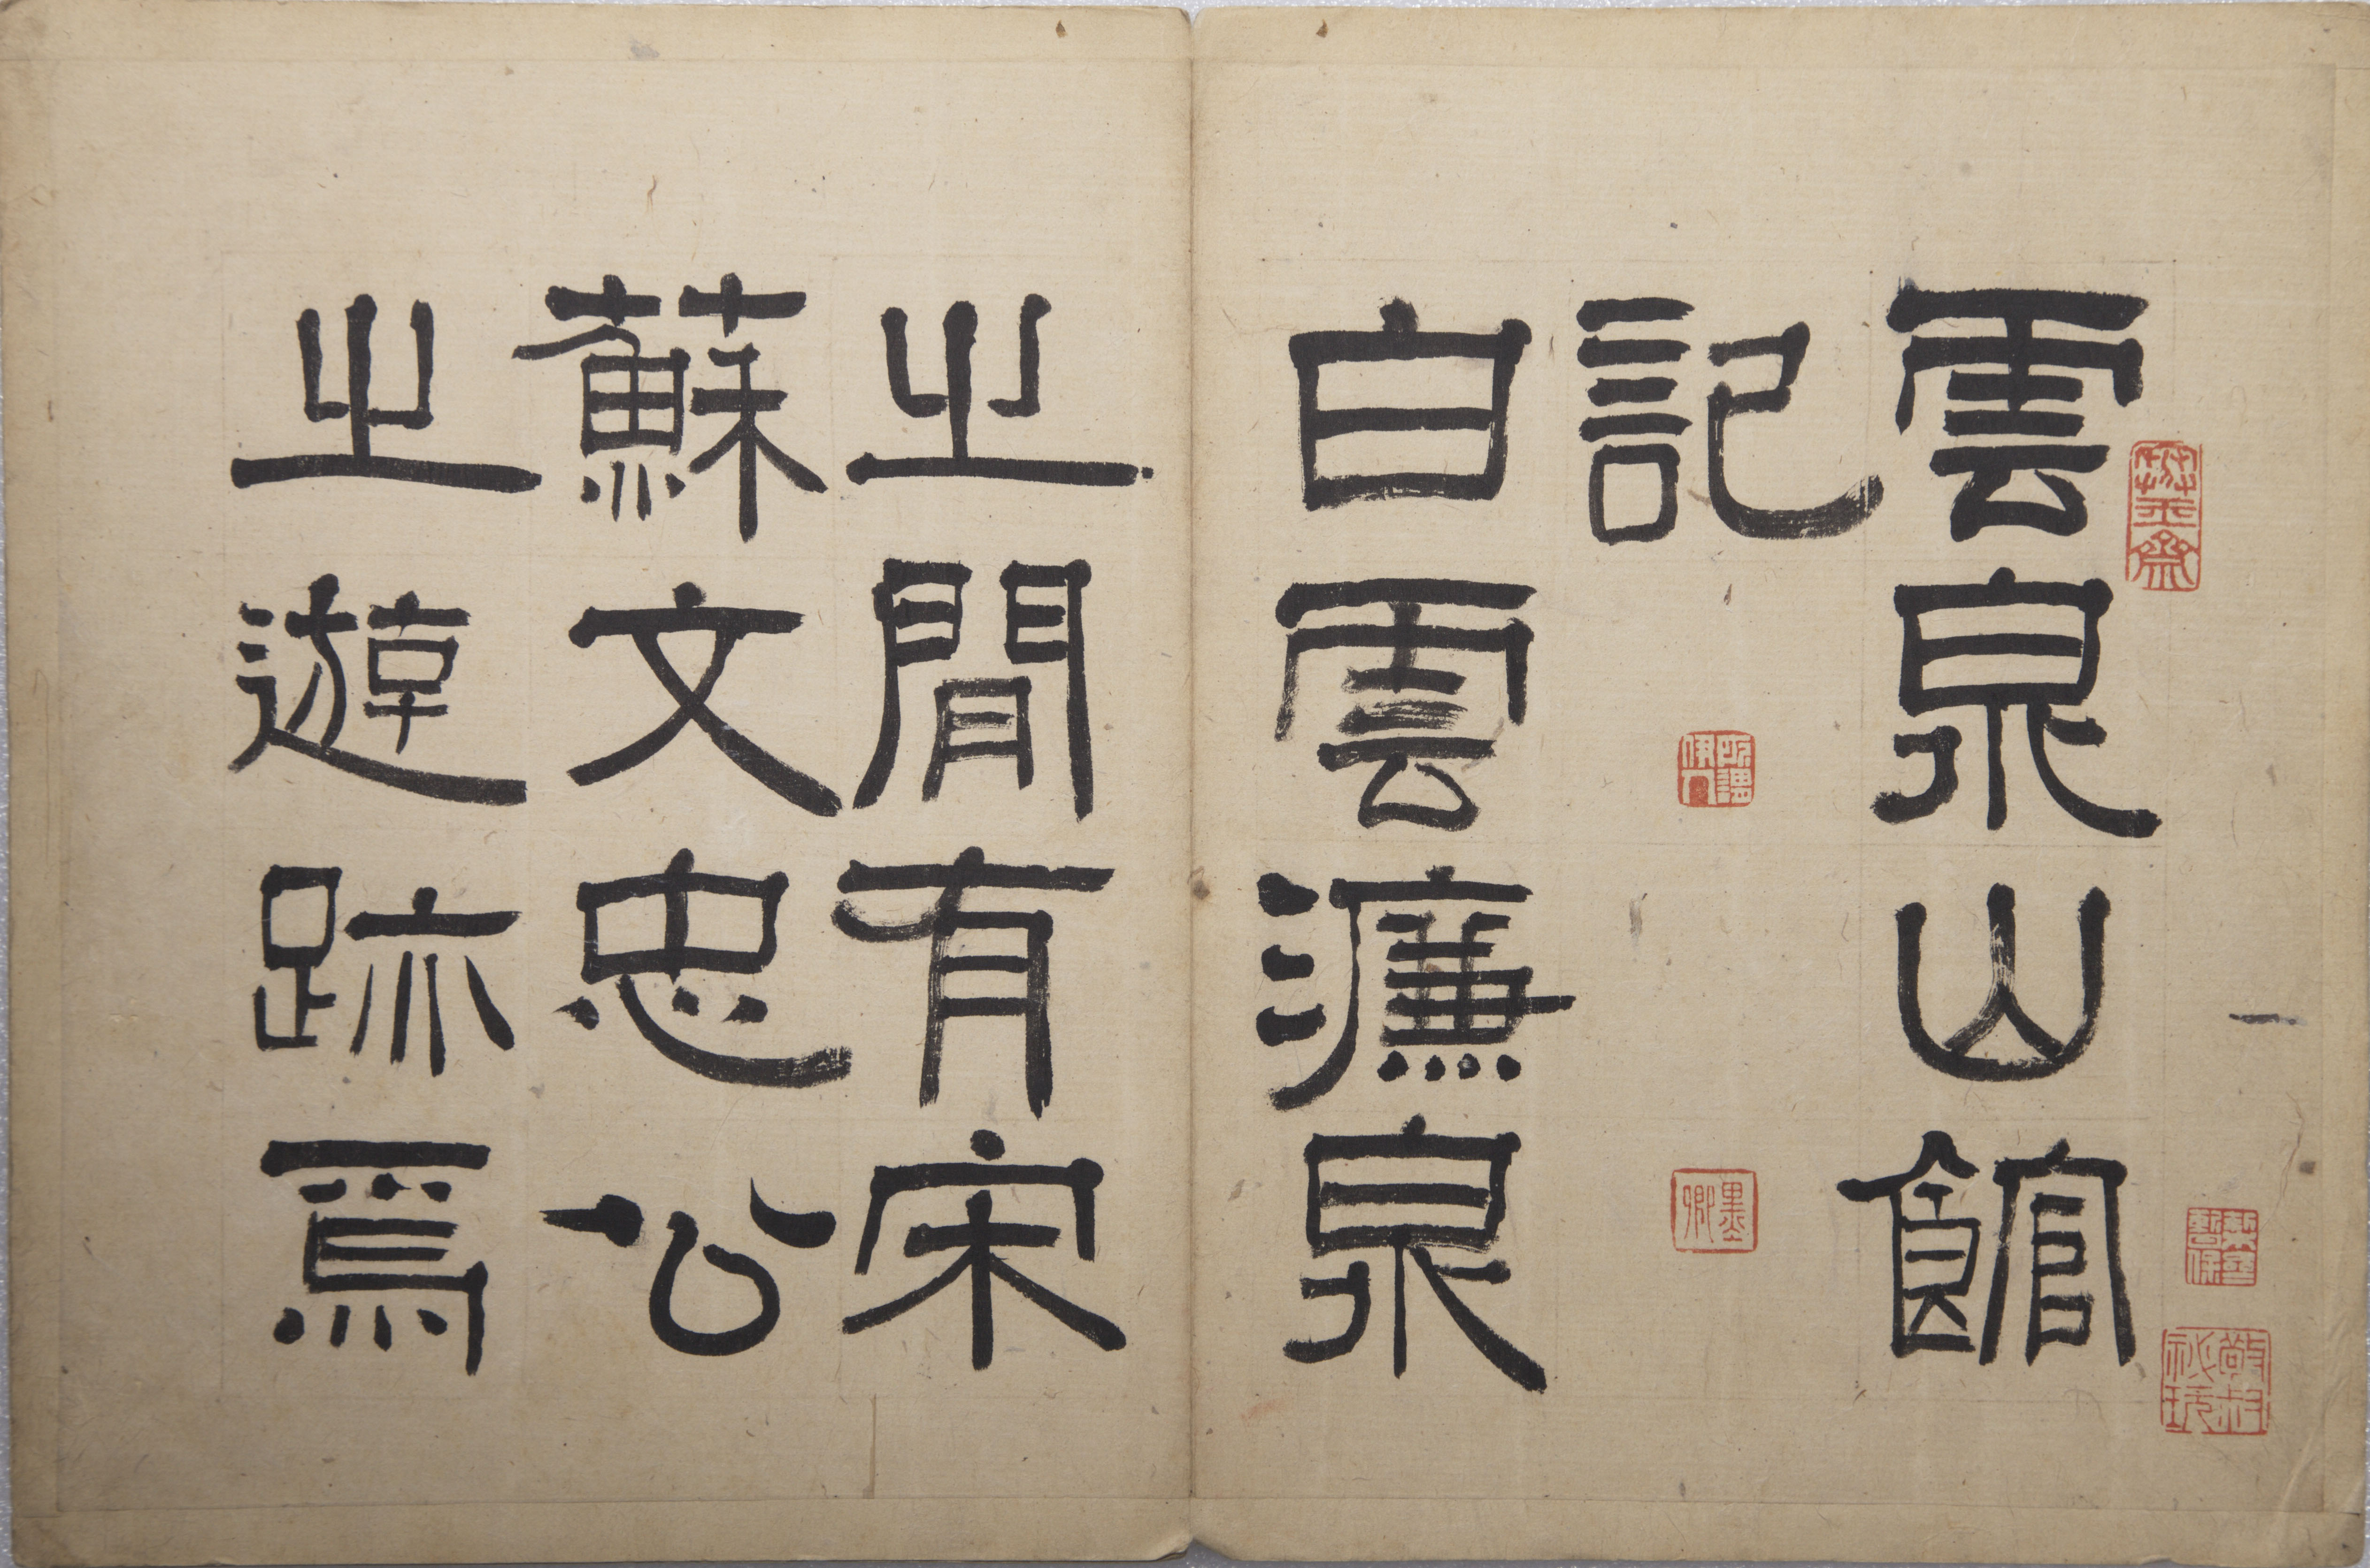 雲泉山館
記
白雲濂泉
之閒有宋
蘇文忠公
之遊跡焉
墨卿